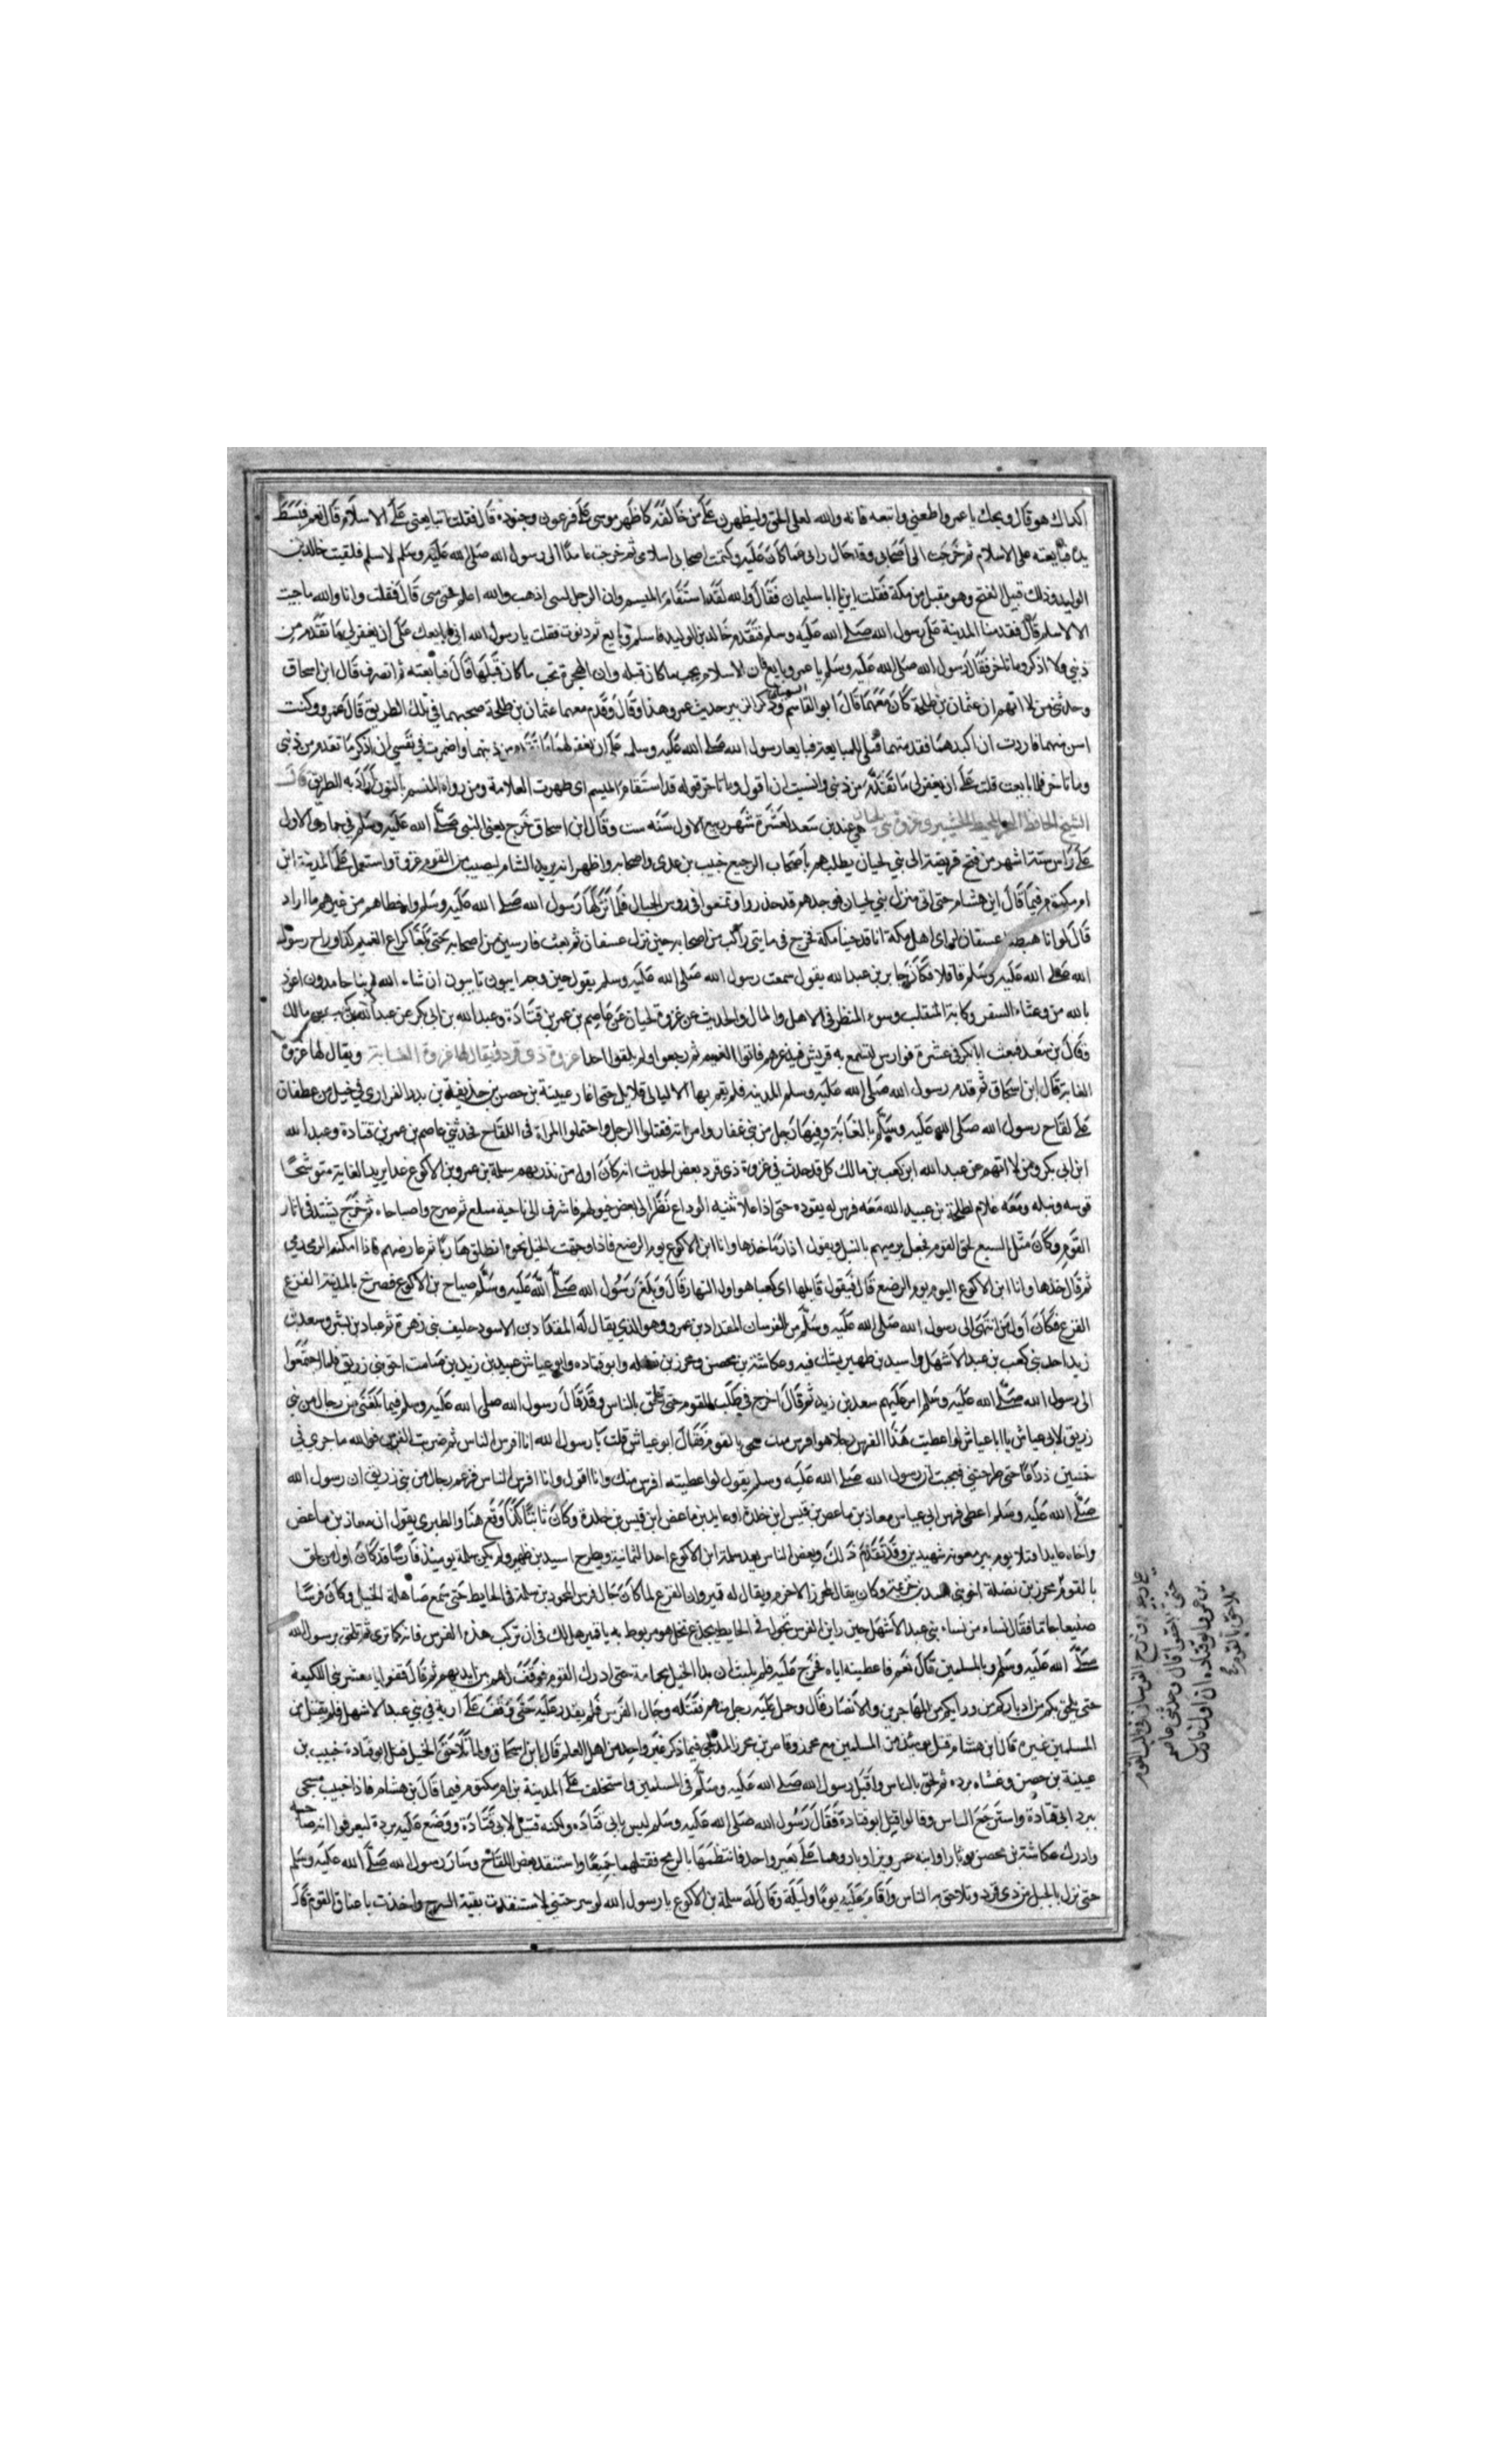 اكذاك هو قال ويحك يا عمرو اطعني واتبعه فانه والله لعلى الحق وليظهرن على من خالفه كما ظهر موسى على فرعون وجنوده قال فقلت اتبايعني على الاسلام قال نعم فبسط
يده فبايعته على الاسلام ثم خرجت الى اصحابي وقد حال رايي عما كان عليه وكتمت اصحابي اسلامي ثم خرجت عامدا الى رسول الله صلى الله عليه وسلم لاسلم فلقيت خالد بن
الوليد وذلك قبيل الفتح وهو مقبل من مكة فقلت اين يا ابا سليمان فقال والله لقد استقام الميسم وان الرجل لنبي اذهب والله اسلم فحتى متى قال فقلت وانا والله ما جيت
الا لاسلم قال فقدمنا المدينة على رسول الله صلى الله عليه وسلم فتقدم خالد بن الوليد فاسلم وبايع ثم دنوت فقلت يا رسول الله اني ابايعك على ان يغفر لي ما تقدم من
ذنبي ولا اذكر وما تاخر فقال رسول الله صلى الله عليه وسلم يا عمرو بايع فان الاسلام يجب ما كان قبله وان الهجرة تجب ما كان قبلها قال فبايعته ثم انصرف قال ابن اسحاق
وحدثني من لا اتهم ان عثمان بن طلحة كان معهما قال ابو القاسم وذكر الزبير حديث عمرو هذا وقال وقدم معهما عثمان بن طلحة صحبهما في تلك الطريق قال عمرو وكنت
اسن منهما فاردت ان اكيدهما فقدمتهما قبلي للمبايعة فبايعا رسول الله صلى الله عليه وسلم على ان يغفر لهما ما تقدم من ذنبهما واضمرت في نفسي ان اذكر ما تقدم من ذنبي
وما تاخر فلما بايعت قلت على ان يغفر لي ما تقدم من ذنبي وانسيت ان اقول وما تاخر قوله قد استقام الميسم اي ظهرت العلامة ومن رواه المنسم بالنون اراد به الطريق قال
الشيخ الحافظ غزوة بني لحيان هي عند بن سعد لعشرة شهر ربيع الاول سنه ست وقال ابن اسحاق خرج يعني النبي صلى الله عليه وسلم في جمادى الاولى
على راس ستة اشهر من فتح قريظة الى بني لحيان يطلبهم باصحاب الرجيع خبيب بن عدي واصحابه واظهر انه يريد الشام ليصيب من القوم غزوة واستعمل على المدينة ابن
ام مكتوم فيما قال ابن هشام حتى اتى منزل بني لحيان فوجدهم قد حذروا وتمنعوا في روس الجبال فلما نزلها رسول الله صلى الله عليه وسلم واخطاهم من غيرهم ما اراد
قال لو انا هبطنا عسفان لراى اهل مكة انا قد جينا مكة فخرج في مايتي راكب من اصحابه حتى نزل عسفان ثم بعث فارسين من اصحابه حتى بلغا كراع الغميم كذا وراح رسول
الله صلى الله عليه وسلم قافلا فكان جابر بن عبد الله يقول سمعت رسول الله صلى الله عليه وسلم يقول حين وجه ايبون تايبون ان شاء الله لربنا حامدون اعوذ
بالله من وعثاء السفر وكابة المنقلب وسوء المنظر في الاهل والمال والحديث عن غزوة لحيان عن عاصم بن عمر بن قتادة وعبد الله بن ابي بكر عن عبد الله بن كعب بن مالك
وقال بن سعد فبعث ابا بكر في عشرة فوارس لتسمع به قريش فيذعرهم فاتوا الغميم ثم رجعوا ولم يلقوا احدا غزوة ذي قرد ويقال لها غزوة الغابة ويقال لها غزوة
الغابة قال ابن اسحاق ثم قدم رسول الله صلى الله عليه وسلم المدينه فلم يقم بها الا ليالي قلايل حتى اغار عيينة بن حصن بن حذيفة بن بدر الفزاري في خيل من غطفان
على لقاح رسول الله صلى الله عليه وسلم بالغابة وفيها رجل من بني غفار وامراته فقتلوا الرجل واحتملوا المراة في اللقاح فحدثني عاصم بن عمر بن قتادة وعبد الله
ابن ابي بكر ومن لا اتهم عن عبد الله ابن كعب بن مالك كل قد حدث في غزوة ذي قرد بعض الحديث انه كان اول من نذر بهم سلمة بن عمرو بن الاكوع غدا يريد الغابة متوشحا
قوسه ونبله ومعه غلام لطلحة بن عبيد الله معه فرس له يقوده حتى اذا علا ثنية الوداع نظر الى بعض خيولهم فاشرف الى ناحية سلع ثم صرخ واصباحاه ثم خرج يشتد في اثار
القوم وكان مثل السبع لحق القوم فجعل يرميهم بالنبل ويقول اذا رما خذها وانا ابن الاكوع يوم الرضع فاذا وجهت الخيل نحوه انطلق هاربا ثم عارضهم فاذا امكنه الرمي رمى
ثم قال خذها وانا ابن الاكوع اليوم يوم الرضع قال فيقول قايلها اي كعبا هو اول النهار قال وبلغ رسول الله صلى الله عليه وسلم صياح بن الاكوع فصرخ بالمدينة الفزع
الفزع فكان اول من انتهى الى رسول الله صلى الله عليه وسلم من الفرسان المقداد بن عمرو وهو الذي يقال له المقداد بن الاسود حليف بني زهرة ثم عباد بن بشر وسعد بن
زيد احد بني كعب بن عبد الاشهل واسيد بن ظهير يشك فيه وعكاشة بن محصن ومحرز بن نضله وابو قتاده وابو عياش عبيد بن زيد بن صامت اخو بني زريق فلما اجتمعوا
الى رسول الله صلى الله عليه وسلم امر عليهم سعد بن زيد ثم قال اخرج في طلب القوم حتى الحق بالناس وقد قال رسول الله صلى الله عليه وسلم فيما بلغني من رجال من بني
زريق لابي عياش يا ابا عياش لو اعطيت هذا الفرس رجلا هو افرس منك يلحق بالقوم فقال ابو عياش قلت يا رسول الله انا افرس الناس ثم ضربت الفرس فوالله ما جرى بي
خمسين ذراعا حتى طرحني فعجبت ان رسول الله صلى الله عليه وسلم يقول لو اعطيته افرس منك وانا اقول وانا افرس الناس فزعم رجال من بني زريق ان رسول الله
صلى الله عليه وسلم اعطى فرس ابي عياش معاذ بن ماعص بن قيس ابن خلدة او عايد بن ماعض ابن قيس بن خلدة وكان ثامنا كذا وقع هنا والطبري يقول ان معاذ بن ماعض
واخاه عايدا قتلا يوم بير معونة شهيدين وقد تقدم ذلك وبعض الناس يعد سلمة ابن الاكوع احد الثمانية ويطرح اسيد بن ظهير ولم يكن سلمة يوميذ فارسا قد كان اول من لحق
بالقوم محرز بن نضلة اخو بني اسد بن خزيمة وكان يقال لمحرز الاخرم ويقال له قمير وان الفزع لما كان جال فرس لمحمود بن مسلمة في الحايط حتى سمع صاهلة الخيل وكان فرسا
صنيعا جاما فقال نساء من نساء بني عبد الاشهل حين راين الفرس تجول في الحايط بجذع نخل هو مربوط به يا قمير هل لك في ان تركب هذا الفرس فانه كما ترى ثم تلحق برسول الله
صلى الله عليه وسلم وبالمسلمين قال نعم فاعطينه اياه فخرج عليه فلم يلبث ان بذ الخيل بجمامه حتى ادرك القوم فوقف لهم بين ايديهم ثم قال قفوا يا معشر بني اللكيعة
حتى يلحق بكم من ادباركم من ورايكم من المهاجرين والانصار قال وحمل عليه رجل منهم فقتله وجال الفرس فلم يقدر عليه حتى وقف على ارية في بني عبد الاشهل فلم يقتل من
المسلمين غيره قال ابن هشام قتل يوميذ من المسلمين مع محرز وقاص بن محرز المدلجي فيما ذكر غير واحد من اهل العلم قال ابن اسحاق ولما تلاحق الخيل قتل ابو قتادة حبيب بن
عيينة بن حصن وغشاه برده ثم لحق بالناس واقبل رسول الله صلى الله عليه وسلم في المسلمين واستخلف على المدينة بن ام مكتوم فيما قال بن هشام فاذا حبيب مسجى
ببرد ابي قتادة واسترجع الناس وقالوا قتل ابو قتادة فقال رسول الله صلى الله عليه وسلم ليس بابي قتاده ولكنه قتيل لابي قتادة ووضع عليه برده ليعرفوا انه صاحبه
وادرك عكاشة بن محصن اوبارا وابنه عمرو بن اوبار وهما على بعير واحد فانتظمهما بالرمح فقتلهما جميعا واستنقذ بعض اللقاح وسار رسول الله صلى الله عليه وسلم
حتى نزل بالجبل من ذي قرد وتلاحق به الناس واقام عليه يوما وليلة وقال له سلمة بن الاكوع يا رسول الله لو سرحتني لاستنقذت بقية السرح واخذت باعناق القوم فقال
خرج الفرسان في طلب القوم
حتى تلاحقوا قال وحدثني عاصم
بن عمر بن قتاده ان اول فارس
تلاحق بالقوم